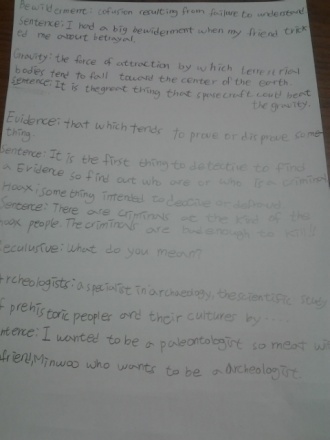 Bewilderment: cofusion resulting from failure to understand
Sentence: I had a big bewiderment when my friend trick
to me about betrayal.
Gravity: the force of attraction by which terrestrial
bodies tend to fall toward the center of the earth.
Sentence: It is the great thing that spacecraft could beat
the gravity.
Evidence: that which tends to prove or disprove some-
thing.
Sentence: It is the first thing to detective to find
a Evidence so find out who are or who is a criminal
Hoax: something intended to deceive or defraud.
Sentence: There are criminals at the kind of the
hoax people. The criminals are bad enough to
Seculusive: what do you mean?
Archeologists: a specialist in archaeology, the scientific study
of prehistoric peoples and their cultures by ....
Sentence: I wanted to be a paleontologist so meat wi
friend, Minwoo who wants to be a archeologist